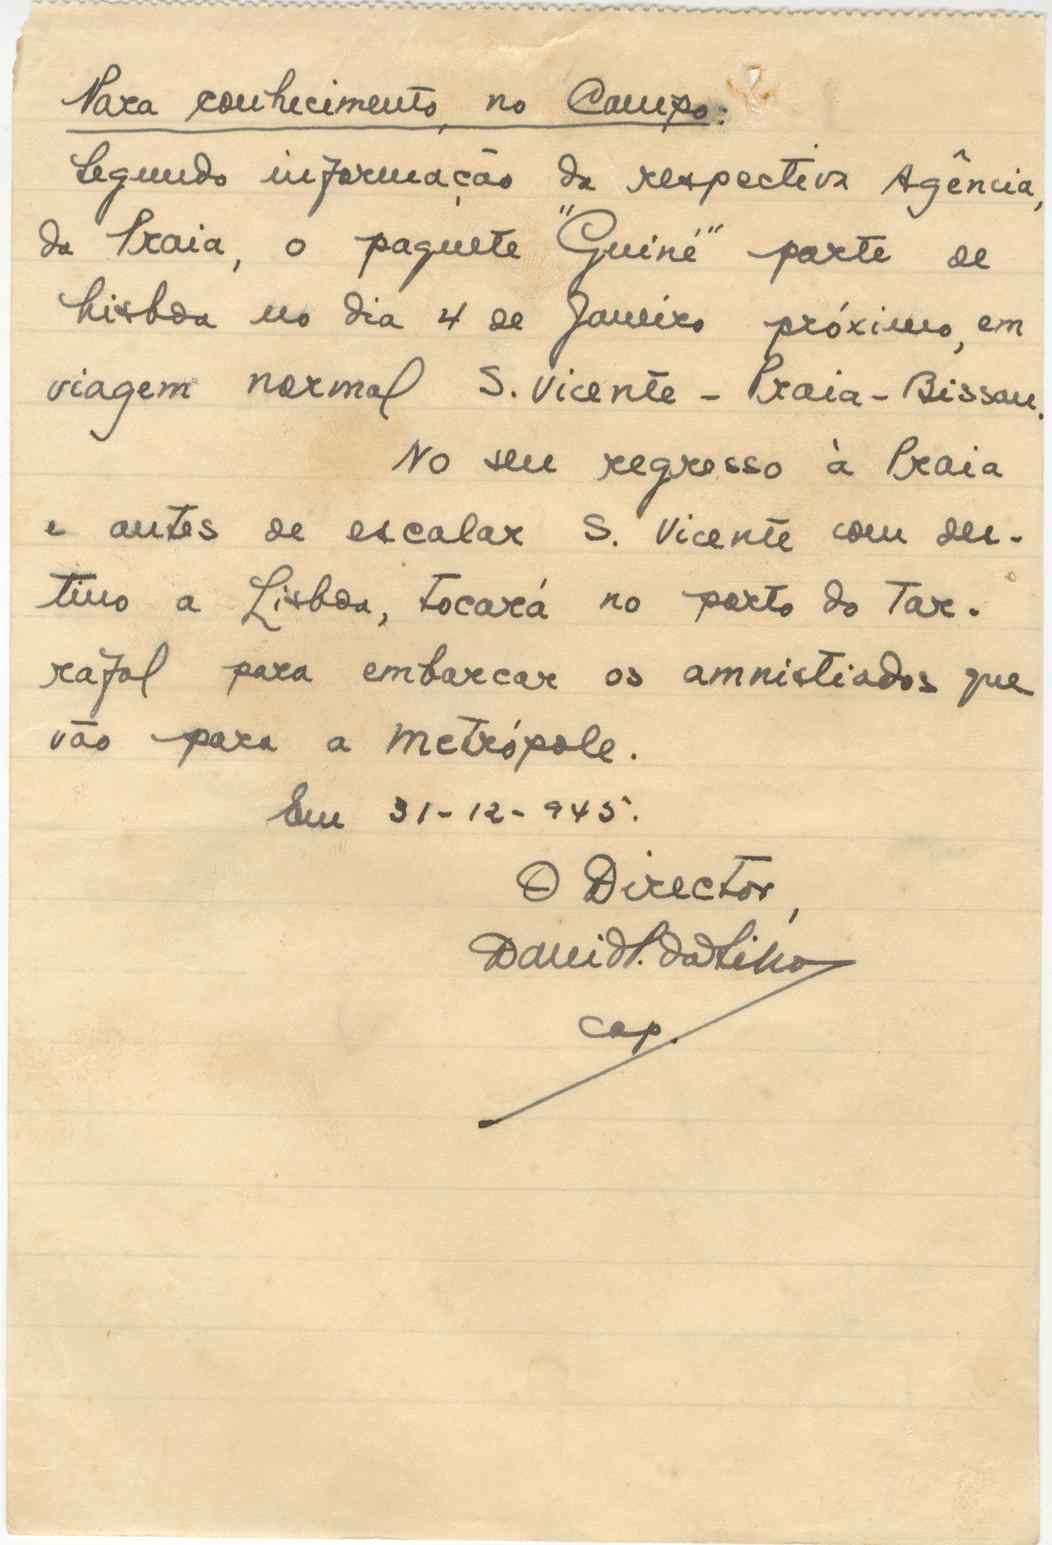 Para conhecimento, no Campo:
Segundo informação da respectiva Agência,
da Praia, o paquete "Guiné" parte de
Lisboa no dia 4 de Janeiro próximo, em
viagem normal S. Vicente - Praia - Bissau.
No seu regresso à Praia
e antes de escalar S. Vicente com des-
tino a Lisboa, tocará no porto do Tar-
rafal para embarcar os amnistiados que
vão para a Metrópole.
Em 31-12-945.
O Director,
David P. da Silva
cap.